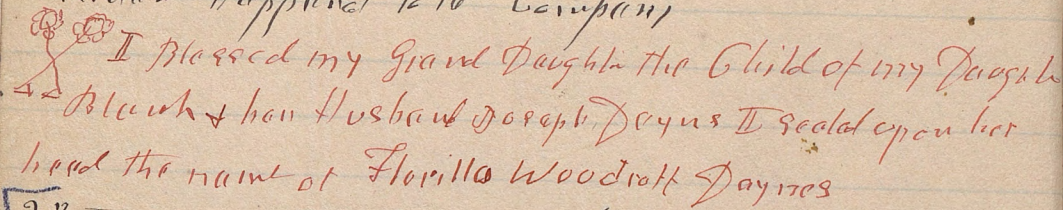 Company
I Blessed my Grand Daughtr the Child of my Daught
Blanch & her Husband Joseph Daynes I seald upon her
head the name of Florilla Woodruff Daynes